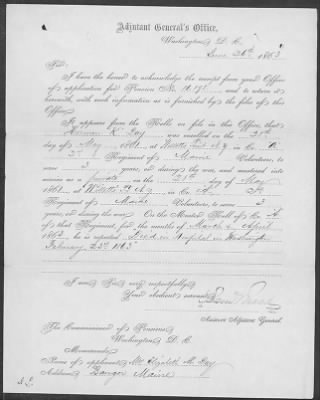 Adjutant General's Office,
Washington, D. C.
June 26th 1863
Sir:
I have the honor to acknowledge the receipt from your Office
of application for Pension No. and to return it
herewith, with such information as is furnished by the files of this
Office.
It appears from the Rolls on file in this Office, that
K. Day was enrolled on the
day of May 1861 at in Co. A
2d Regiment of Maine Volunteers, to
serve 3 years, or during the war, and mustered into
service as a private on the day of May
1861 at in Co. A 2d
Regiment of Maine Volunteers, to serve 3
years, or during the war. On the Muster Roll of Co. A
of that Regiment, for the months of March & April
1863, he is reported Died in Hospital in Washington
February 23d 1863
I am, Sir, very respectfully,
Your obedient servant,
Assistant Adjutant General.
The Commissioner of Pensions,
Washington, D. C.
Memoranda.
Name of applicant, Mrs Elizabeth M. Day
Address, Bangor Maine